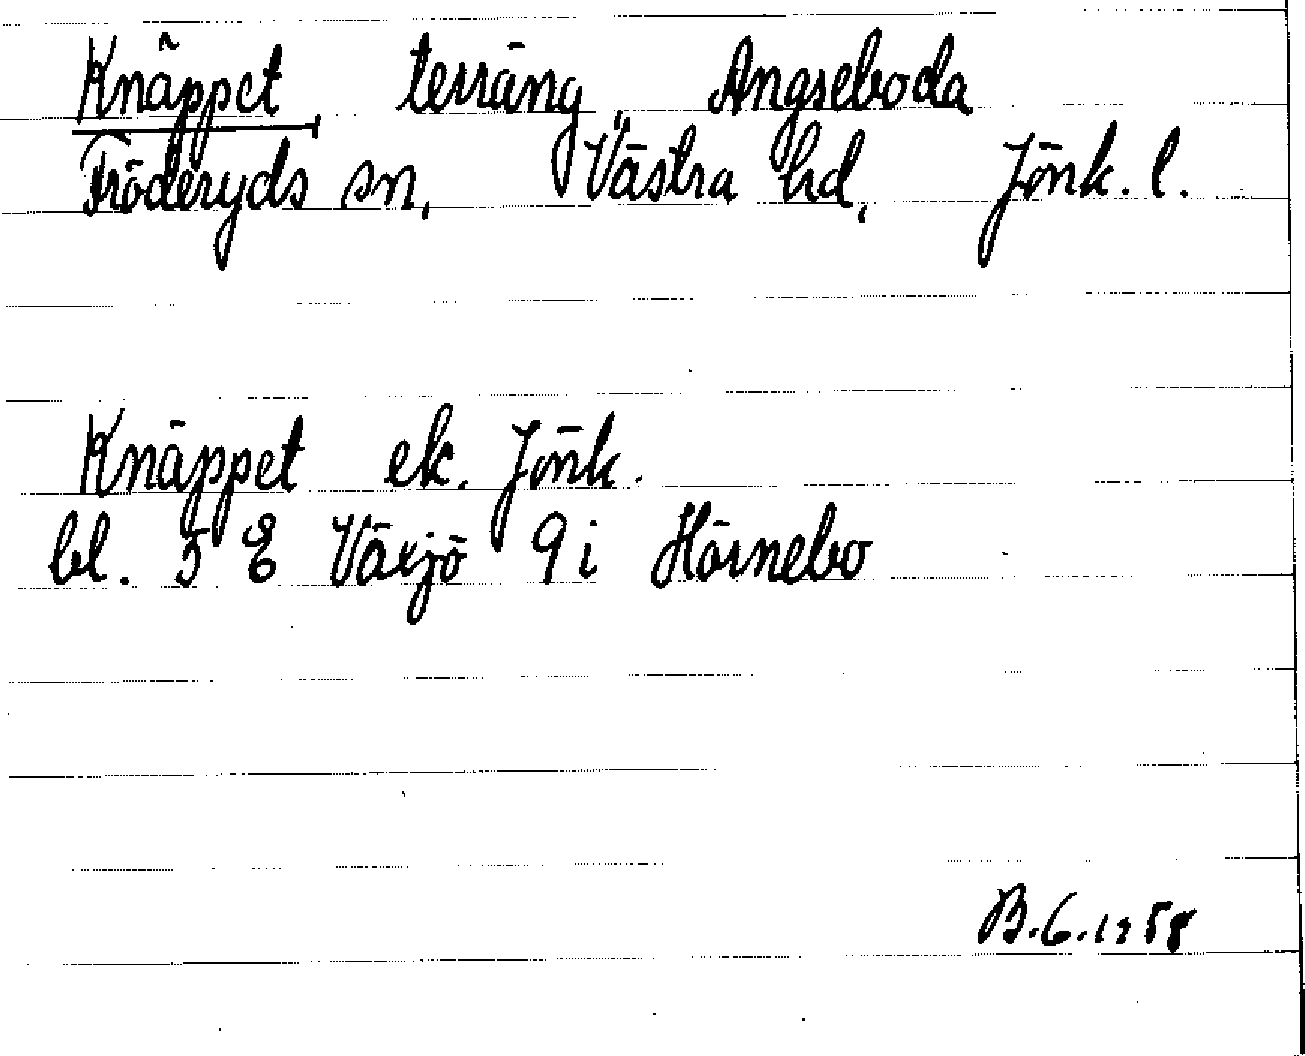 Knäppet, terräng, Angseboda
Fröderyds sn, Västra hd, Jönk. l.
Knäppet ek. Jönk.
bl. 5 E Växjö 9 i Hörnebo
B.G. 1958